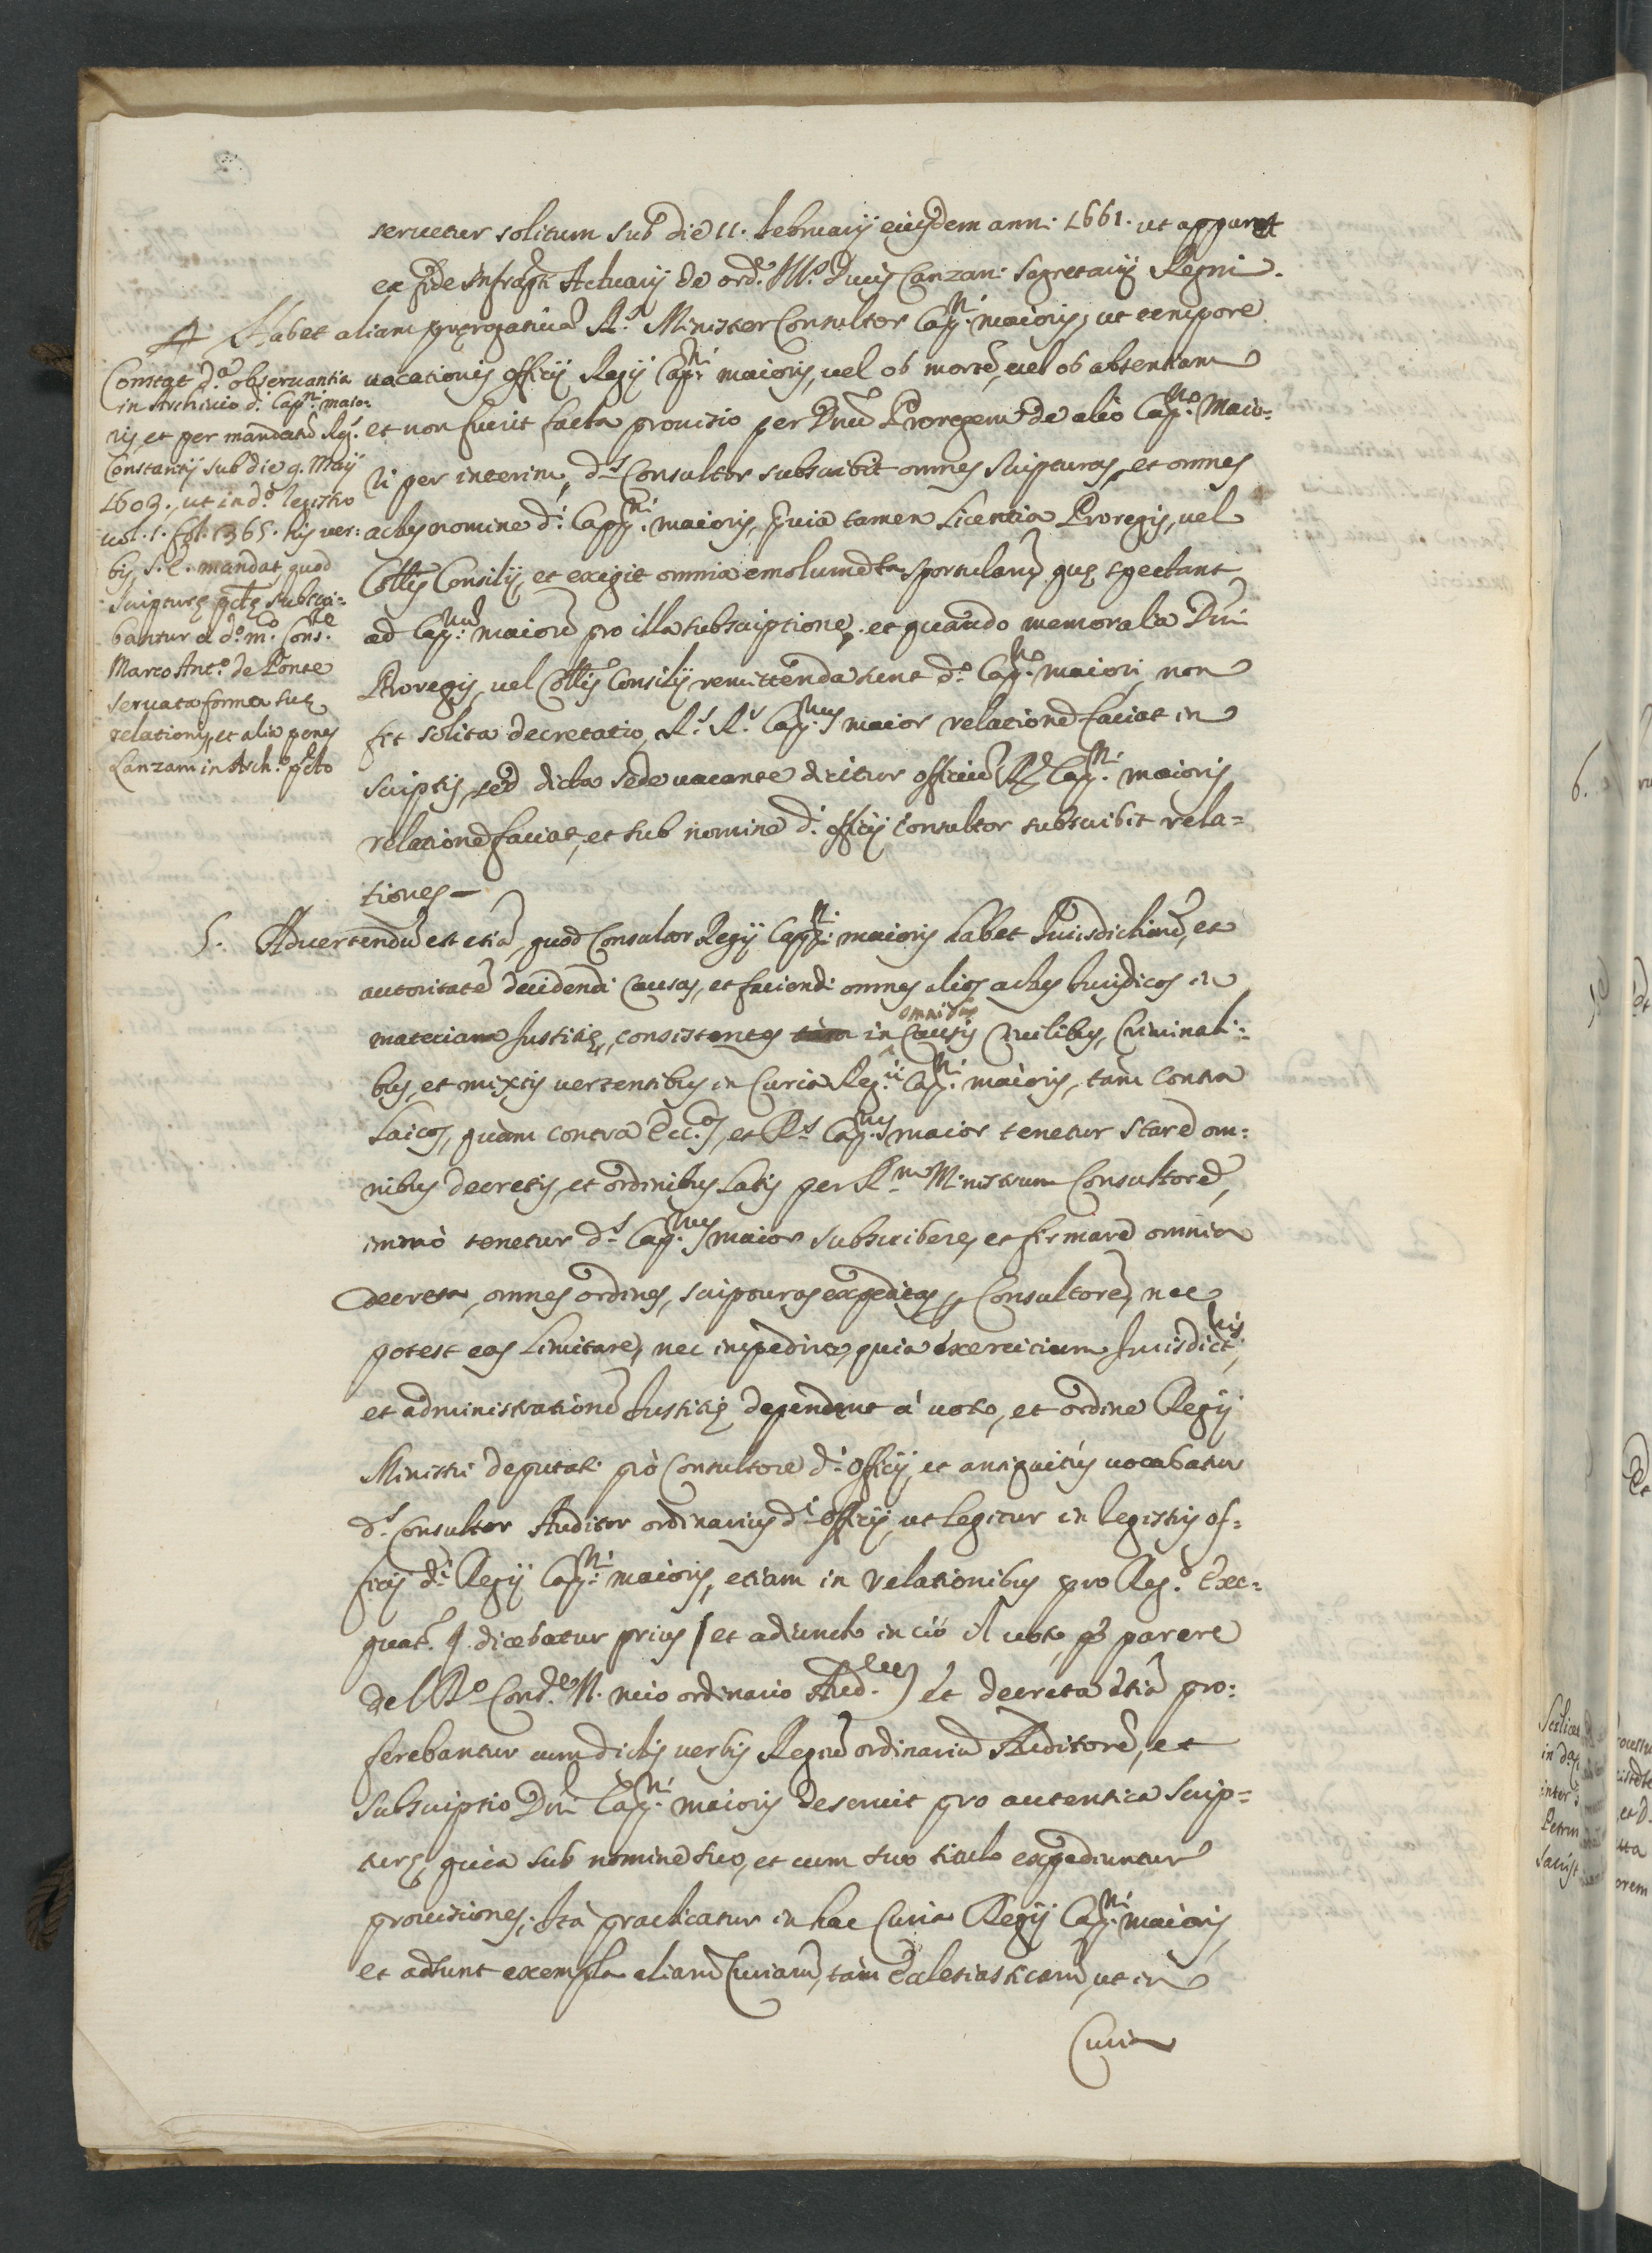 seruetur solitum sub die 11. Februarij eiusdem anni 1661. ut apparet
ex fide infraptti Actuarij de ord.e Ill.s Ducis Lanzani Segretarij Regni.
4 Habet aliam pręrogatiuā R.s Minister Consultor Cap.ni maioris, ut tempore
uacationis officij Regij Cap.ni maioris, uel ob mortē, uel ob absentiam
et non fuerit facta prouisio per Dnū Proregem de alio Cap.no Maio=
ri per interim, d.s Consultor subscribit omnes scripturas, et omnes
actus nomine d.i Capp.ni maioris, prvia tamen licentia Proregis, uel
Collis Consilij, et exigit omnia emolumēta sportularū, quę spectant
ad Cap.num maiorē pro illa subscriptione, et quando memoralia Dni
Proregis, uel Collis Consilij remittenda sunt d.o Cap.no maiori, non
fit solita decretatio, R.s R.s Cap.nus maior relationē faciat in
scriptis, sed dicta sede uacante dicitur officiū R. Cap.ni maioris
relationē faciat, et sub nomine d.i officij Consultor subscribit rela=
tiones —
Constat d.a obseruantia
in Archiuio d.i Cap.ni maio:
ris, et per mandatū Reg.
Constantij sub die 9. Maij
1603., ut in d.o Registro
uol. 1. fol. 1365. his uer:
bis, S. E. mandat quod
scripturę pttę subscri=
bantur a d.o m.co Cons.re
Marco Ant.o de Ponte
seruata forma suę
relationis, et alia penes
Lanzam in Arch.o ptto
5. Aduertendū est etiā, quod Consultor Regij Capp.ni maioris habet Iurisdictionē, et
autoritatē decidendi causas, et faciendi omnes alios actus Iuridicos in
materiam Iustitię, consistentes tàm in omnibus Causis Ciuilibus, Criminali=
bus, et mixtis uertentibus in Curia Reg.ij Cap.ni maioris, tam contra
Laicos, quam contra Ecc.os, et R.s Cap.nus maior tenetur stare om:
nibus decretis, et ordinibus latis per R.m Ministrum Consultorē,
immò tenetur d.s Cap.nus maior subscribere, et firmare omnia
decreta, omnes ordines, scripturas expeditas p Consultorē, nec
potest eas limitare, nec impedire, quia exercitium Iurisdict.nis,
et administrationē Iustitię dependent à uoto, et ordine Regij
Ministri deputati prò Consultore d.i officij, et antiquitus uocabatur
d.s Consultor Auditor ordinarius d.i officij, ut legitur in Registris of=
ficij d.i Regij Cap.ni maioris, etiam in relationibus pro Reg.o Exe=
quat. q. dicebatur prius (et adiuncto in ciò il uoto, p parere
del R.o Cons.re N. mio ordinario Aud.re) et decreta etiā pro:
ferebantur cum dictis uerbis Regiū ordinariū Auditorē, et
subscriptio Dni Cap.ni maioris deseruit pro autentica scrip=
turę, quia sub nomine suo, et cum suo titulo expediuntur
prouisiones; Ità practicatur in hac Curia Regij Cap.ni maioris,
et adsunt exempla aliarū Curiarū, tàm Ecclesiasticarū, ut in
Curia